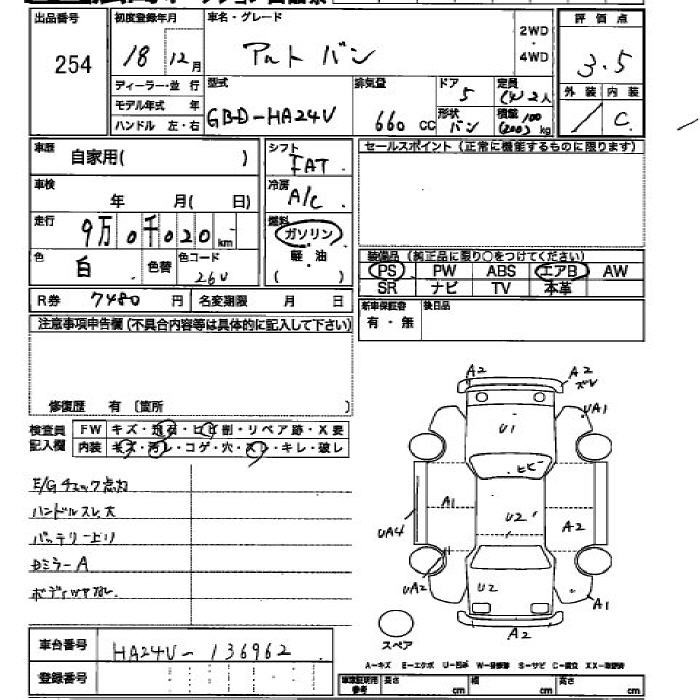 出品番号
254
初度登録年月
18 12月
車名・グレード
アルト バン
2WD
・
4WD
評価点
3.5
外装 内装
／ C
ディーラー・並行
モデル年式 年
ハンドル 左・右
型式
GBD-HA24V
排気量
660 CC
ドア
5
形状
バン
定員
(4) 2人
積載 100
(200) kg
車歴
自家用( )
シフト
FAT
車検
年 月( 日)
冷房
A/C
走行
9万0千020km
燃料
ガソリン
軽・油
( )
色
白
色替
色コード
26U
R券 7480 円
名変期限 月 日
セールスポイント (正常に機能するものに限ります)
装備品 (純正品に限り○をつけてください)
PS PW ABS エアB AW
SR ナビ TV 本革
新車保証書
有・無
後日品
注意事項申告欄 (不具合内容等は具体的に記入して下さい)
修復歴 有 〔箇所 〕
検査員
記入欄
FW キズ・飛石・ヒビ割・リペア跡・X要
内装 キズ・汚レ・コゲ・穴・スレ・キレ・破レ
E/Gチェック点灯
ハンドルスレ大
バッテリー上り
Dミラー A
ボディツヤなし
A2
A2
ズレ
UA1
U1
ヒビ
A1
UA4
U2
A2
UA2
U2
A1
A2
スペア
A-キズ E-エクボ U-凹み W-補修跡 S-サビ C-腐食 XX-交換済
車台番号
HA24V-136962
登録番号
車庫証明用
参考
長さ cm
幅 cm
高さ cm